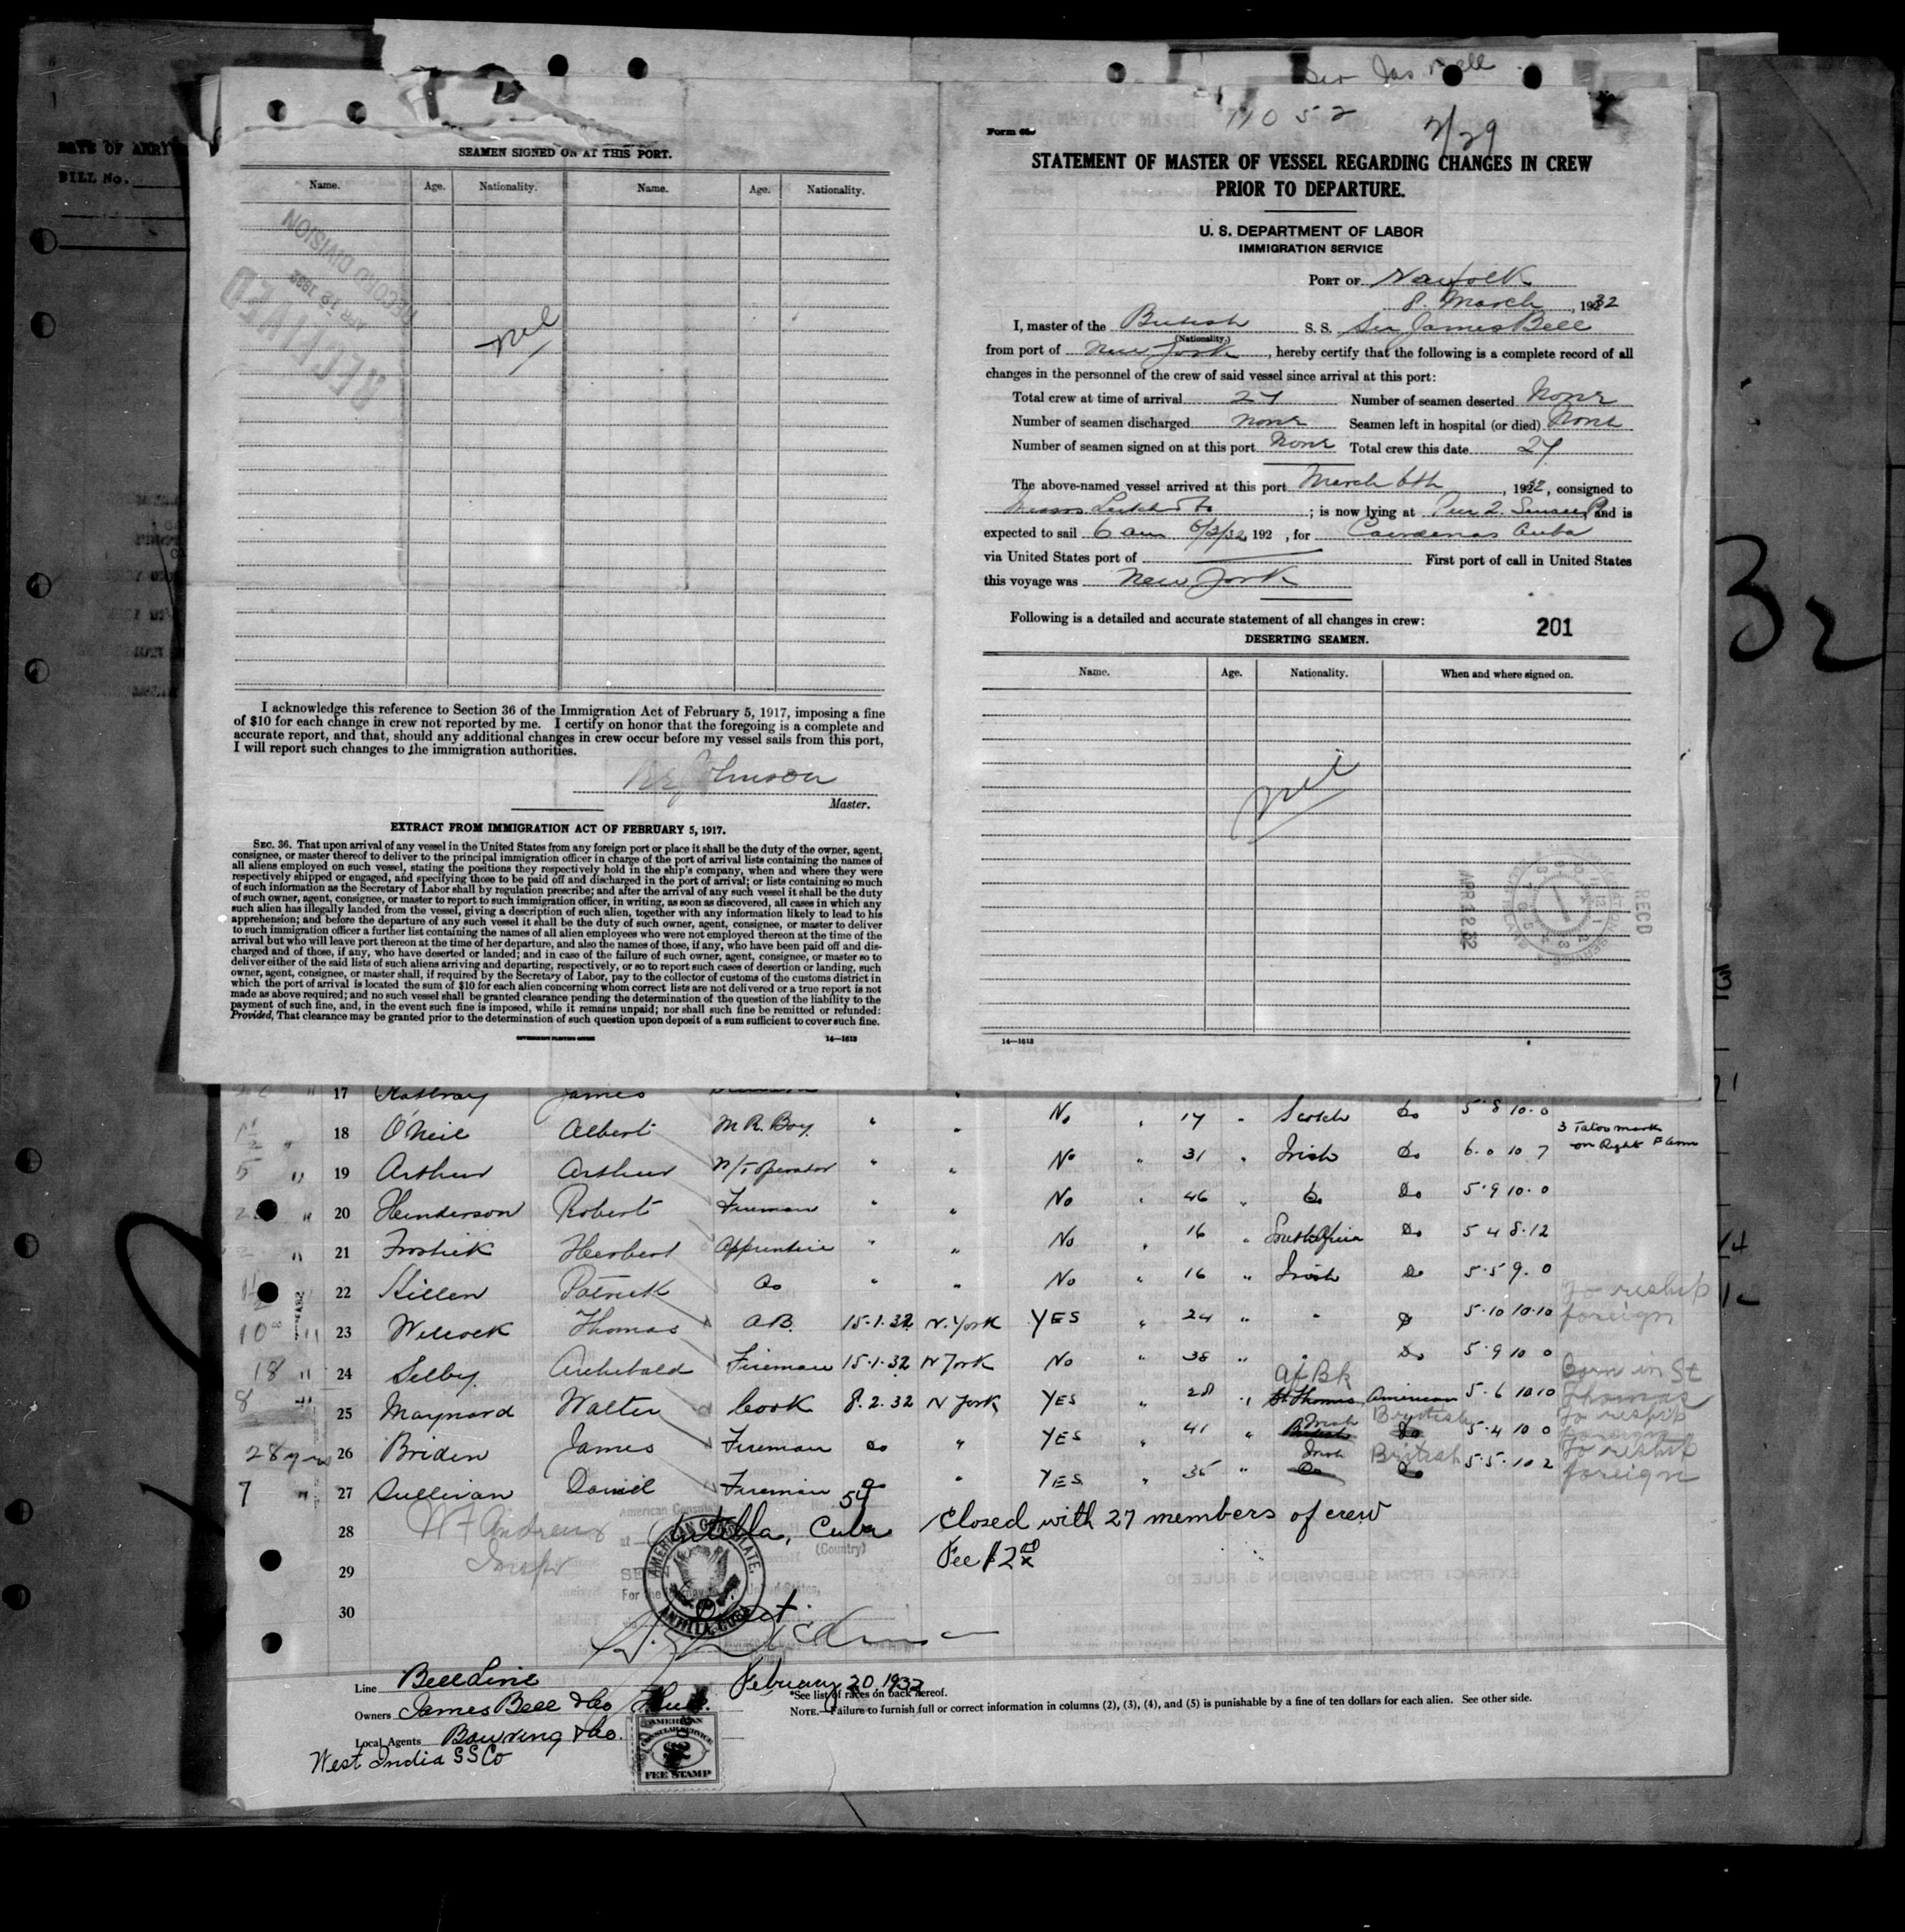 DATE OF ARRI
BILL No.
SEAMEN SIGNED ON AT THIS PORT.
Name. Age. Nationality. Name. Age. Nationality.
RECEIVED
APR 12 1932
RECORD DIVISION
nil
I acknowledge this reference to Section 36 of the Immigration Act of February 5, 1917, imposing a fine
of $10 for each change in crew not reported by me. I certify on honor that the foregoing is a complete and
accurate report, and that, should any additional changes in crew occur before my vessel sails from this port,
I will report such changes to the immigration authorities.
Johnson
Master.
EXTRACT FROM IMMIGRATION ACT OF FEBRUARY 5, 1917.
SEC. 36. That upon arrival of any vessel in the United States from any foreign port or place it shall be the duty of the owner, agent,
consignee, or master thereof to deliver to the principal immigration officer in charge of the port of arrival lists containing the names of
all aliens employed on such vessel, stating the positions they respectively hold in the ship's company, when and where they were
respectively shipped or engaged, and specifying those to be paid off and discharged in the port of arrival; or lists containing so much
of such information as the Secretary of Labor shall by regulation prescribe; and after the arrival of any such vessel it shall be the duty
of such owner, agent, consignee, or master to report to such immigration officer, in writing, as soon as discovered, all cases in which any
such alien has illegally landed from the vessel, giving a description of such alien, together with any information likely to lead to his
apprehension; and before the departure of any such vessel it shall be the duty of such owner, agent, consignee, or master to deliver
to such immigration officer a further list containing the names of all alien employees who were not employed thereon at the time of the
arrival but who will leave port thereon at the time of her departure, and also the names of those, if any, who have been paid off and dis-
charged and of those, if any, who have deserted or landed; and in case of the failure of such owner, agent, consignee, or master so to
deliver either of the said lists of such aliens arriving and departing, respectively, or so to report such cases of desertion or landing, such
owner, agent, consignee, or master shall, if required by the Secretary of Labor, pay to the collector of customs of the customs district in
which the port of arrival is located the sum of $10 for each alien concerning whom correct lists are not delivered or a true report is not
made as above required; and no such vessel shall be granted clearance pending the determination of the question of the liability to the
payment of such fine, and, in the event such fine is imposed, while it remains unpaid; nor shall such fine be remitted or refunded:
Provided, That clearance may be granted prior to the determination of such question upon deposit of a sum sufficient to cover such fine.
GOVERNMENT PRINTING OFFICE 14—1613
Sir Jas Bell
11052
2/29
Form
STATEMENT OF MASTER OF VESSEL REGARDING CHANGES IN CREW
PRIOR TO DEPARTURE.
U. S. DEPARTMENT OF LABOR
IMMIGRATION SERVICE
PORT OF Norfolk
8. March, 1932
I, master of the British S. S. Sir James Bell
(Nationality.)
from port of New York, hereby certify that the following is a complete record of all
changes in the personnel of the crew of said vessel since arrival at this port:
Total crew at time of arrival 27 Number of seamen deserted None
Number of seamen discharged none Seamen left in hospital (or died) None
Number of seamen signed on at this port None Total crew this date 27
The above-named vessel arrived at this port March 6th, 1932, consigned to
Messrs ; is now lying at Pier 2. and is
expected to sail 6 am 192 , for Cardenas Cuba
via United States port of First port of call in United States
this voyage was New York
Following is a detailed and accurate statement of all changes in crew:
201
DESERTING SEAMEN.
Name. Age. Nationality. When and where signed on.
nil
RECD
APR 12 32
14—1613
32
17 James
18 O'Neil Albert M R. Boy " " No " 17 " Scotch Do 5·8 10·0
3 Tatoo mark
on Right F arm
5 " 19 Arthur Arthur W/T Operator " " No " 31 " Irish Do 6·0 10 7
20 Henderson Robert Fireman " " No " 46 " Do Do 5·9 10·0
21 Herbert Apprentice " " No " 16 " South Africa Do 5 4 8·12
22 Hillen Patrick Do " " No " 16 " Irish Do 5·5 9·0
10 " 23 Wilcock Thomas A.B. 15·1·32 N. York YES " 24 " " Do 5·10 10·10 to reship foreign
18 " 24 Selby Archibald Fireman 15·1·32 N York No " 38 " " Do 5·9 10 0
8 " 25 Maynard Walter Cook 8·2·32 N York YES " 28 " Af Bk St Thomas American 5·6 10 10 born in St Thomas
28 yrs 26 Briden James Fireman do " YES " 41 " Irish British Do British 5·4 10 0 to reship foreign
7 " 27 Sullivan Daniel Fireman do " YES " 35 " Irish Do British Do 5·5·10 2 to reship foreign
28 W F Andrews Antilla, Cuba Closed with 27 members of crew
American Consulate
(Country)
Inspr
Fee $2
29
AMERICAN CONSULATE
ANTILLA, CUBA
30
Line Bell Line February 20, 1932
*See list of races on back hereof.
Owners James Bell & Co Hull.
NOTE.—Failure to furnish full or correct information in columns (2), (3), (4), and (5) is punishable by a fine of ten dollars for each alien. See other side.
Local Agents Bowring & Co.
West India SS Co
AMERICAN
CONSULAR SERVICE
FEE STAMP